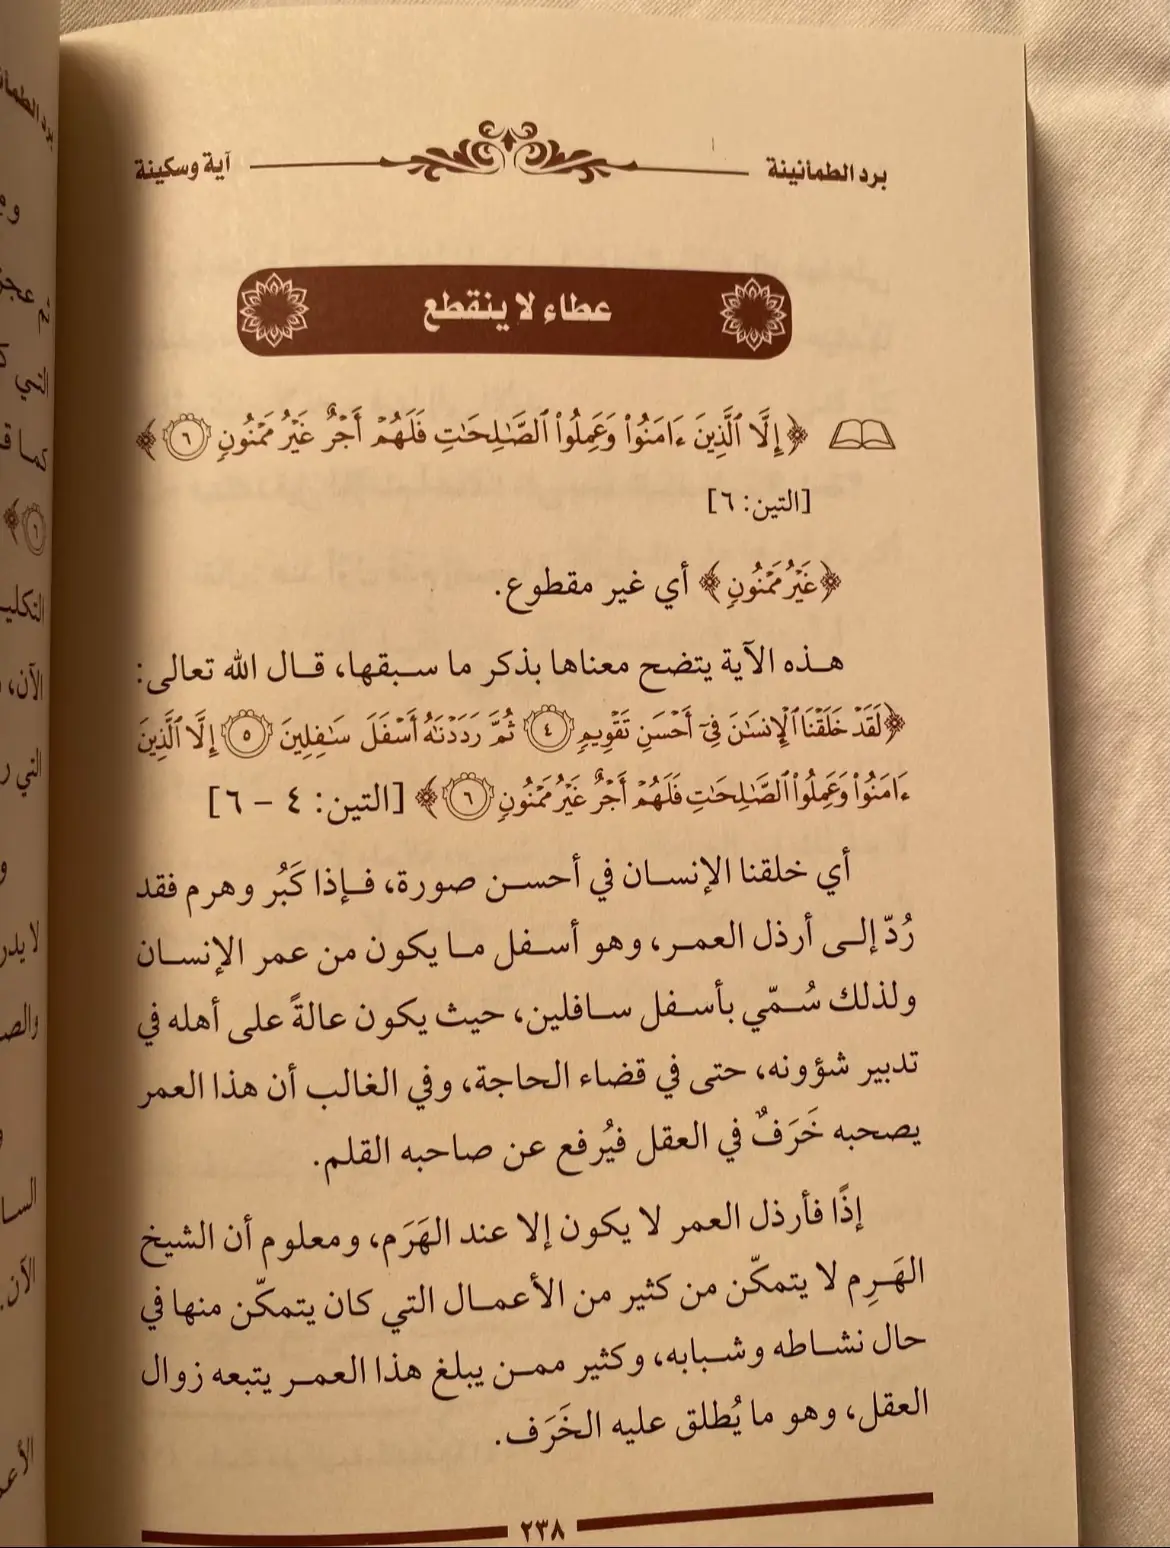 برد الطمأنينة
آية وسكينة
عطاء لا ينقطع
﴿إِلَّا ٱلَّذِينَ ءَامَنُوا۟ وَعَمِلُوا۟ ٱلصَّـٰلِحَـٰتِ فَلَهُمْ أَجْرٌ غَيْرُ مَمْنُونٍ ٦﴾
[التين: ٦]
﴿غَيْرُ مَمْنُونٍ﴾ أي غير مقطوع.
هذه الآية يتضح معناها بذكر ما سبقها، قال الله تعالى:
﴿لَقَدْ خَلَقْنَا ٱلْإِنسَـٰنَ فِىٓ أَحْسَنِ تَقْوِيمٍ ٤ ثُمَّ رَدَدْنَـٰهُ أَسْفَلَ سَـٰفِلِينَ ٥ إِلَّا ٱلَّذِينَ
ءَامَنُوا۟ وَعَمِلُوا۟ ٱلصَّـٰلِحَـٰتِ فَلَهُمْ أَجْرٌ غَيْرُ مَمْنُونٍ ٦﴾ [التين: ٤ - ٦]
أي خلقنا الإنسان في أحسن صورة، فإذا كَبُر وهرم فقد
رُدّ إلى أرذل العمر، وهو أسفل ما يكون من عمر الإنسان
ولذلك سُمّي بأسفل سافلين، حيث يكون عالةً على أهله في
تدبير شؤونه، حتى في قضاء الحاجة، وفي الغالب أن هذا العمر
يصحبه خَرَفٌ في العقل فيُرفع عن صاحبه القلم.
إذًا فأرذل العمر لا يكون إلا عند الهَرَم، ومعلوم أن الشيخ
الهَرِم لا يتمكّن من كثير من الأعمال التي كان يتمكّن منها في
حال نشاطه وشبابه، وكثير ممن يبلغ هذا العمر يتبعه زوال
العقل، وهو ما يُطلق عليه الخَرَف.
٢٣٨